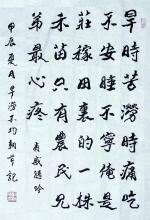 旱時苦澇時痛吃
不安睡不寧俺是
莊稼田裏的一株
禾苗只有農民兄
弟最心疼
有感隨吟
甲辰夏月旱澇不均記